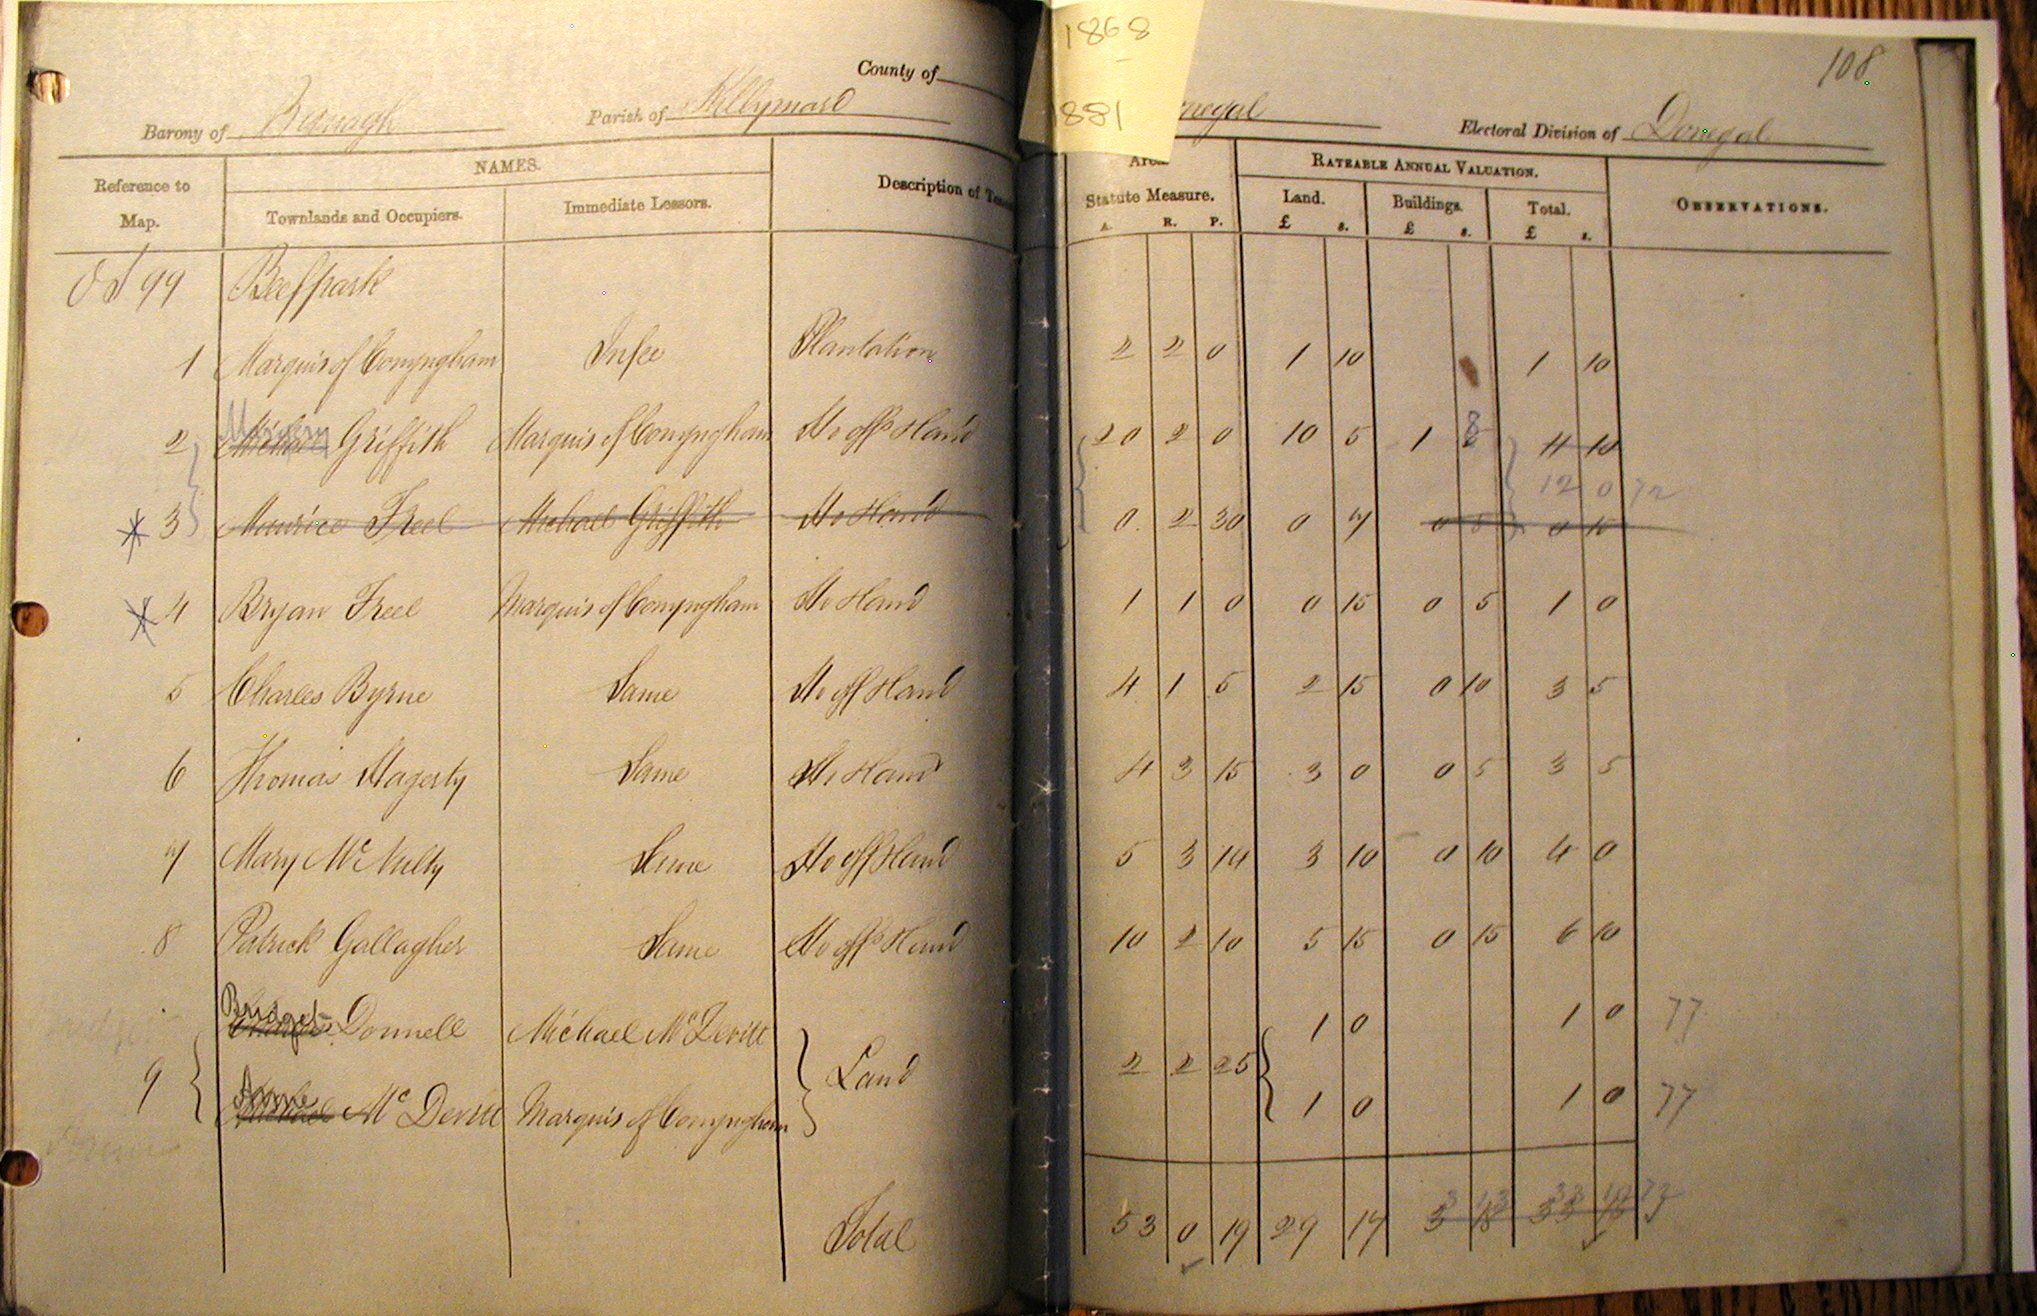 1868
1881
108
County of Donegal
Barony of Banagh Parish of Killymard Electoral Division of Donegal
Reference to Map. NAMES. Description of Tenement Area. Statute Measure. RATEABLE ANNUAL VALUATION. OBSERVATIONS.
Townlands and Occupiers. Immediate Lessors. A. R. P. Land. £ s. Buildings. £ s. Total. £ s.
Od 99 Beefpark
1 Marquis of Conyngham In fee Plantation 2 2 0 1 10 1 10
2 Griffith Marquis of Conyngham Ho offs & land 20 2 0 10 5 1 8 11 10
12 0 72
3 Maurice Freel Michael Griffith Ho & land 0 2 30 0 7 0 10
4 Bryan Freel Marquis of Conyngham Ho & land 1 1 0 0 15 0 5 1 0
5 Charles Byrne Same Ho off & land 4 1 5 2 15 0 10 3 5
6 Thomas Hagerty Same Ho & land 4 3 15 3 0 0 5 3 5
7 Mary McNulty Same Ho off & land 5 3 14 3 10 0 10 4 0
8 Patrick Gallagher Same Ho offs & land 10 2 10 5 15 0 15 6 10
Bridget Donnell Michael McDevitt 1 0 1 0 77
9 Land 2 2 25
Anne Michael McDevitt Marquis of Conyngham 1 0 1 0 77
Total 53 0 19 29 17